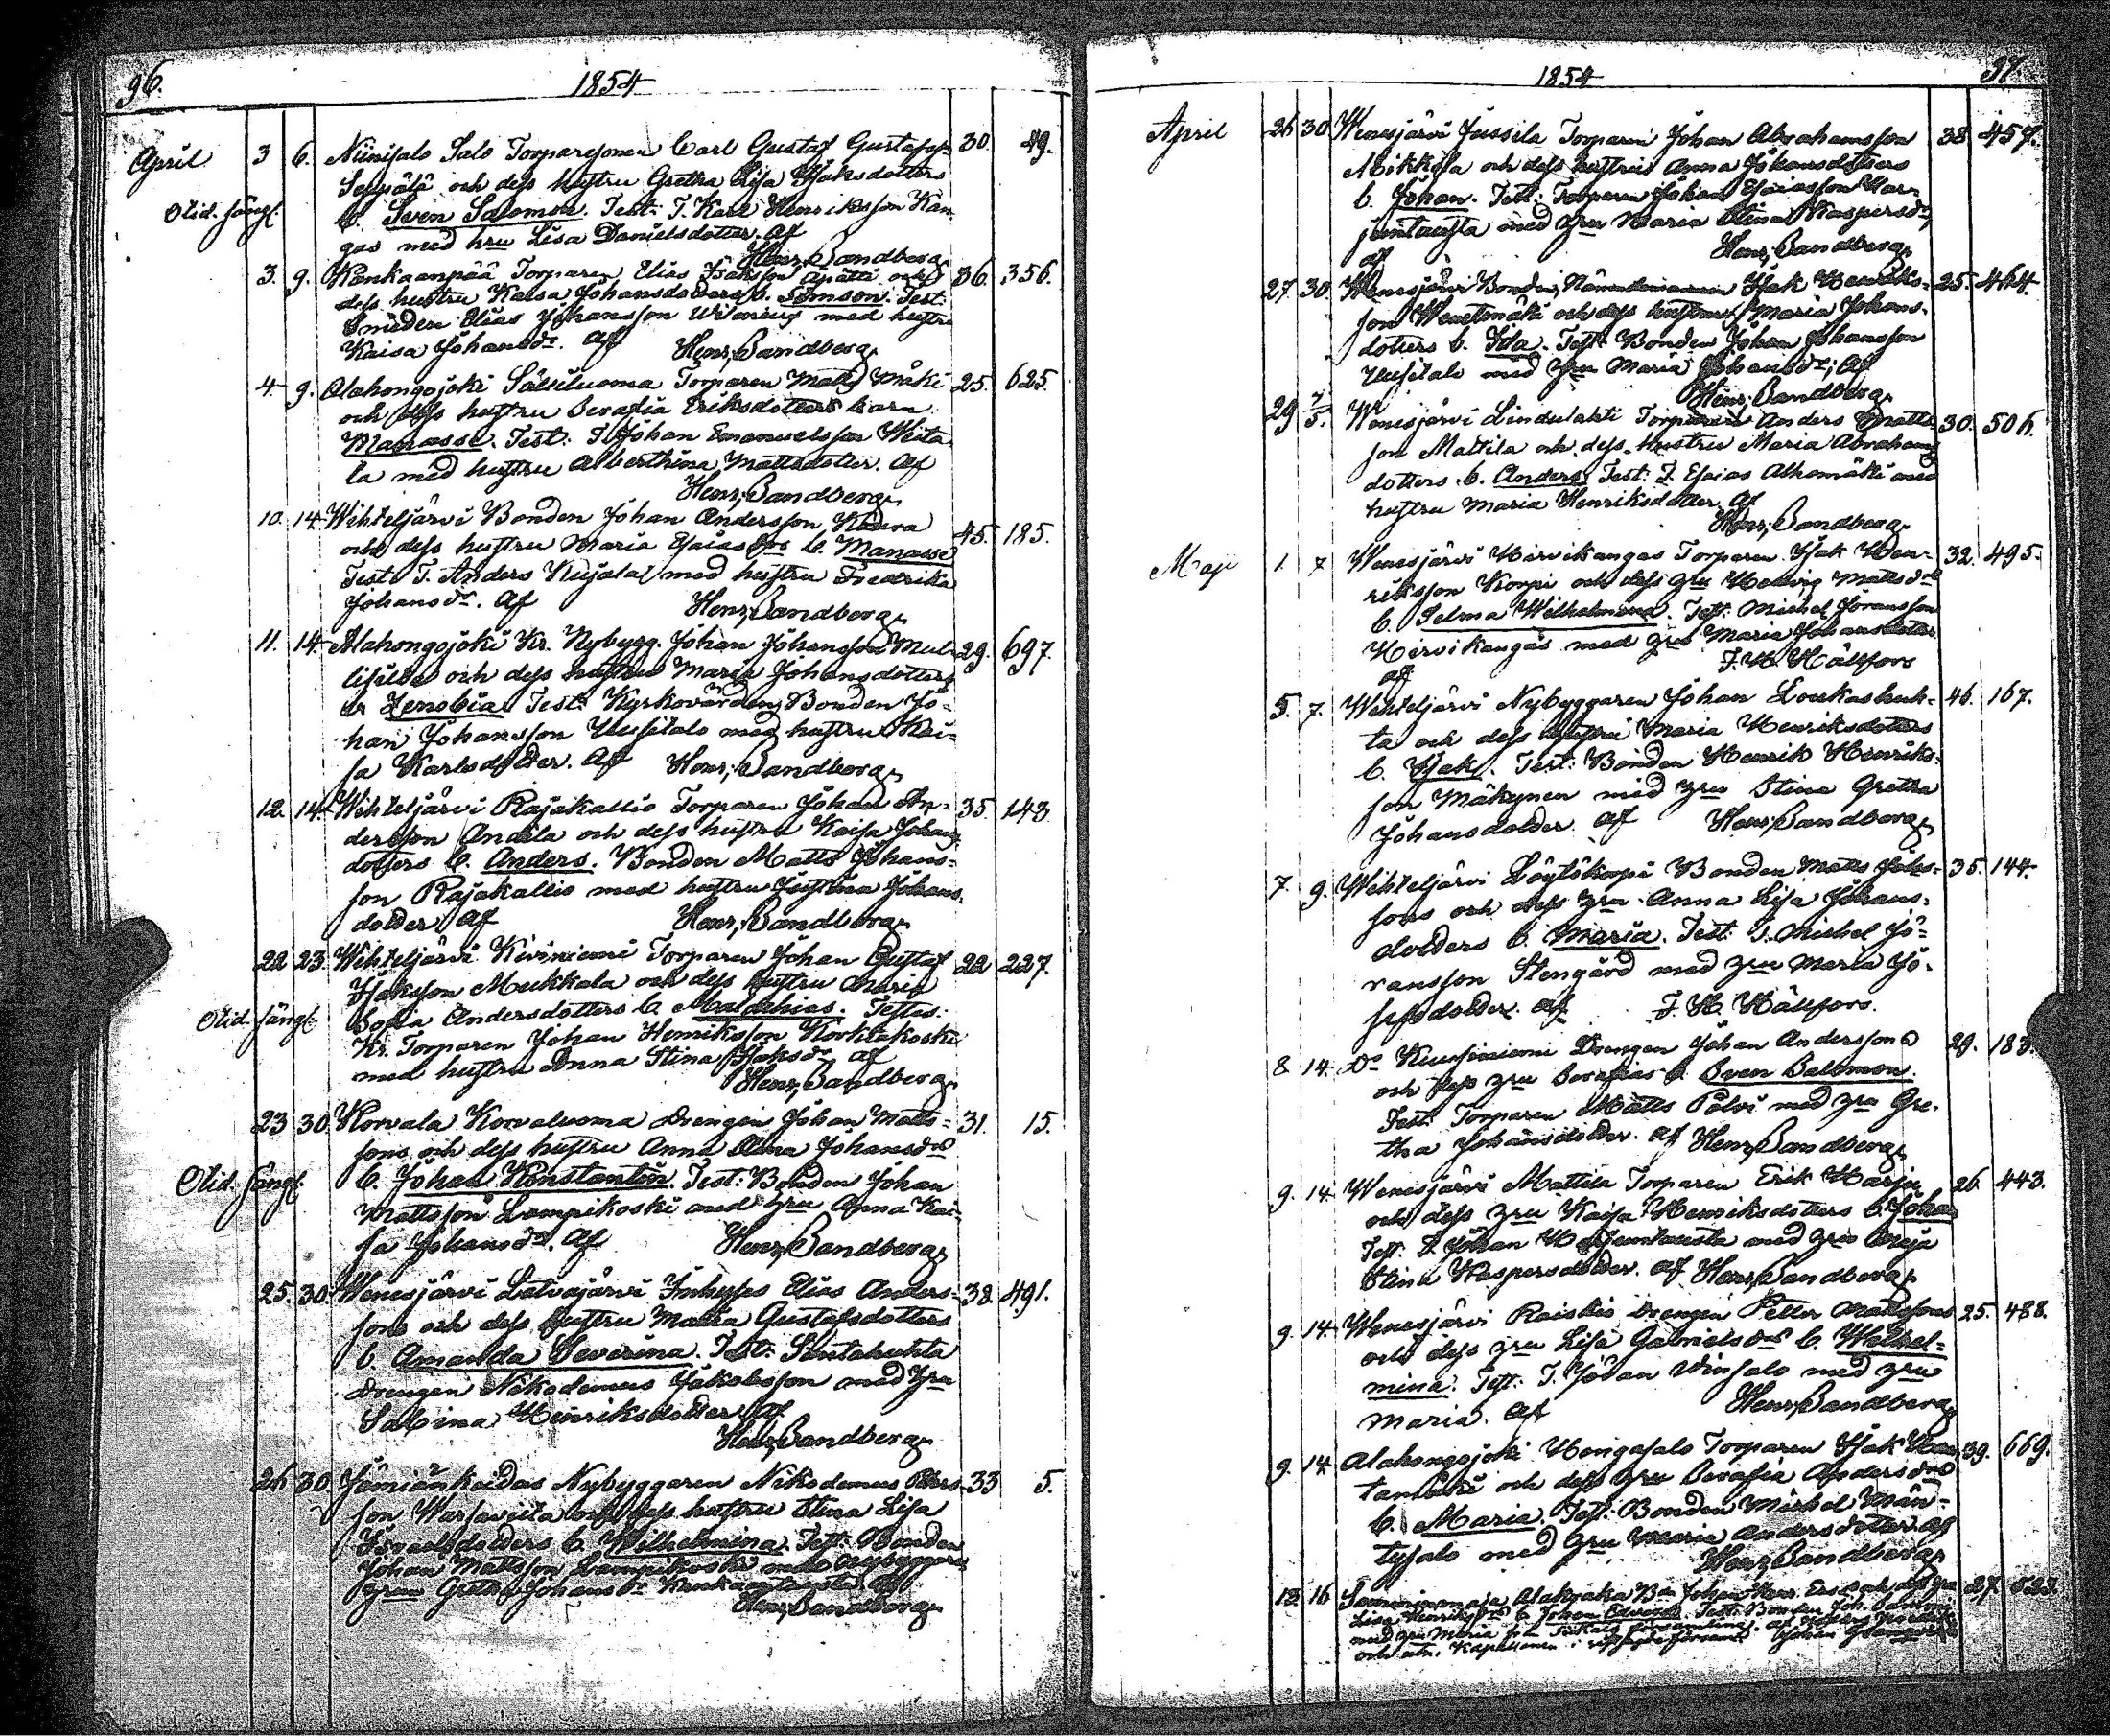 96.
1854
April 3 6. Niinisalo Salo Torparesonen Carl Gustaf Gustafss. 30. 49.
Seppälä och dess hustru Gretha Lisa Isaksdotters
Olid. fångl. b. Sven Salomon. Test: T. Karl Henriksson Kan
gas med hru Lisa Danielsdotter. af
Henr. Sandberg.
3. 9. Kankaanpää Torparen Elias Isaksson och 36. 356.
dess hustru Kaisa Johansdotters b. Simson. Test:
Smeden Elias Johansson med hustru
Kaisa Johansdr. af Henr. Sandberg.
4. 9. Alahongojoki Torparen Matts Mäki 25. 625.
och dess hustru Serafia Eriksdotters barn
Manasse. Test: T. Johan Emanuelsson Weita
la med hustru Alberthina Mattsdotter. af
Henr. Sandberg.
10. 14. Wihteljärvi Bonden Johan Andersson 45. 185.
och dess hustru Maria Esaiasdrs b. Manasse
Test: T. Anders Kujala med hustru Fredrika
Johansdr. af Henr. Sandberg.
11. 14. Alahongojoki Kr. Nybygg. Johan Johansson 29. 697.
och dess hustru Maria Johansdotters
b. Zenobia. Test: Kyrkovärden, Bonden Jo-
han Johansson Uusitalo med hustru Kai-
sa Karlsdotter. af Henr. Sandberg.
12. 14. Wihteljärvi Rajakallio Torparen Johan An- 35. 143
dersson Andila och dess hustru Kaisa Johans
dotters b. Anders. Bonden Matts Johans-
son Rajakallio med hustru Justina Johans
dotter af Henr. Sandberg.
22 23. Wihteljärvi Kiviniemi Torparen Johan Gustaf 22 227.
Isaksson Mukkala och dess hustru Maria
Olid. fångl. Sofia Andersdotters b. Matthias. Testes:
Kr. Torparen Johan Henriksson Korhiakoski
med hustru Anna Stina Isaksdr af
Henr. Sandberg.
23 30. Korvala Korvaluoma Drengen Johan Matts- 31. 15.
sons och dess hustru Anna Stina Johansdrs
Olid. fångl. b. Johan Konstantin. Test: Bonden Johan
Mattsson Lampikoski med hru Anna Kai-
sa Johansdr. af Henr. Sandberg.
25. 30. Wenesjärvi Latvajärvi Inhyses Elias Anders- 38. 491.
sons och dess hustru Maria Gustafsdotters
b. Amanda Severina. Test: Santahuhta
Drengen Nikodemus Jakobsson med hru
Sabina Henriksdotter af
Henr. Sandberg.
26 30. Jämiänkeidas Nybyggaren Nikodemus Peters- 33 5.
son och dess hustru Stina Lisa
Israelsdotters b. Wilhelmina. Test: Bonden
Johan Mattsson Lampikoski med Nybyggare
hrun Gretha Johansdr af
Henr. Sandberg.
1854
97.
April 26 30 Wenesjärvi Jussila Torparen Johan Abrahamsson 38 457.
Mikkola och dess hustrus Anna Johansdotters
b. Johan. Test: Torparen Johan Esaiasson Har-
juntausta med hru Maria Stina Kaspersdr,
af Henr. Sandberg.
27. 30. Wenesjärvi Bonden, Nämndemannen Isak Henriks- 25. 464.
son Wenetmäki och dess hustru Maria Johans-
dotters b. Ida. Test: Bonden Johan Johansson
Uusitalo med hru Maria Johansdr, af
Henr. Sandberg.
29 7/5. Wenesjärvi Lindulahti Torparen Anders Matts 30. 506.
son Mattila och dess hustru Maria Abrahams
dotters b. Anders. Test: T. Esaias Alhomäki med
hustru Maria Henriksdotter af
Henr. Sandberg.
Maji 1. 7 Wenesjärvi Hirvikangas Torparen Isak Hen- 32. 495.
riksson Korpi och dess hru Hedvig Mattsdrs
b. Selma Wilhelmina. Test: Michel Göransson
Hirvikangas med hru Maria Johansdotter
af F. H. Hällfors
5. 7. Wihteljärvi Nybyggaren Johan Loukashuh- 46. 167.
ta och dess hustru Maria Henriksdotters
b. Isak. Test: Bonden Henrik Henriks-
son Mäkynen med hru Stina Gretha
Johansdotter af Henr. Sandberg.
7. 9. Wihteljärvi Löytökorpi Bonden Matts Johs- 35. 144.
sons och dess hru Anna Lisa Johans-
dotters b. Maria. Test: T. Michel Gö-
ransson Stengård med hru Maria Jo-
sefsdotter. af F. H. Hällfors.
8 14. Do Kuusiniemi Drengen Johan Anderssons 29. 183.
och dess hru Serafias b. Sven Salomon.
Test: Torparen Matts Pölvi med hru Gre-
tha Johansdotter. af Henr. Sandberg.
9. 14. Wenesjärvi Mattila Torparen Erik Harju 26. 443.
och dess hru Kaisa Henriksdotters b. Johan
Test: T. Johan Harjuntausta med hru Maja
Stina Kaspersdotter. af Henr. Sandberg.
9. 14. Wenesjärvi Raiskio Drengen Petter Mattssons 25. 488.
och dess hru Lisa Gabrielsdrs b. Wilhel-
mina. Test: T. Johan med hru
Maria. af Henr. Sandberg.
9. 14. Alahongojoki Hongasalo Torparen Isak Han- 39. 669.
tamäki och dess hru Serafia Andersdrs
b. Maria. Test: Bonden Michel Män-
tysalo med hru Maria Andersdotter af
Henr. Sandberg.
12 16 Bn Johan och dess hru 27. 523.
Lisa b. Johan Edvard. Test: Bonden
med hru Maria församling. af
och Kapellanen i